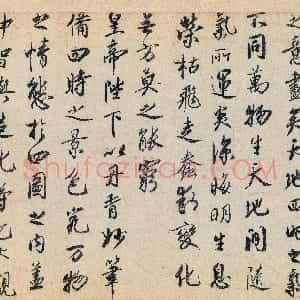 之意盡矣天地四時之氣
不同萬物生天地間隨
氣所運炎涼晦明生息
榮枯飛走蠢動變化
無方莫之能窮
皇帝陛下以丹青妙筆
備四時之景色究萬物
之情態於四圖之内蓋
神智與造化等也大觀
Shufazidian.com